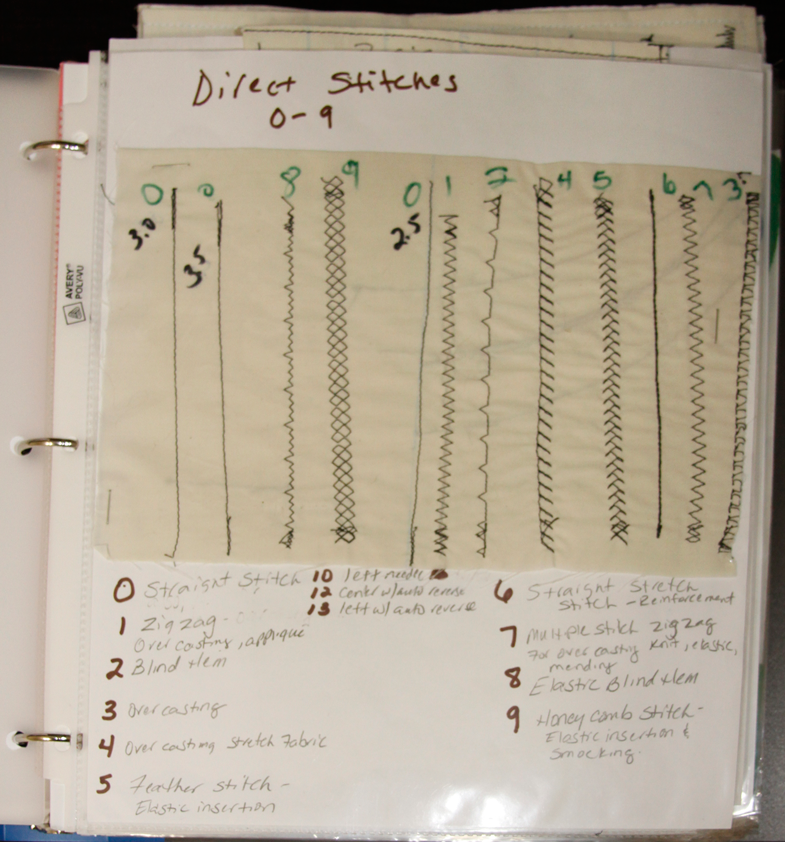 Direct Stitches
0-9
0 0 8 9 0 1 2 4 5 6 7 3
3.0
3.5
2.5
AVERY®
POLY-VU
0 Straight Stitch
10 left needle
12 center w/auto reverse
13 left w/auto reverse
1 Zig zag -
Over casting, appliqué
2 Blind Hem
3 Over casting
4 Over casting stretch Fabric
5 Feather stitch -
Elastic insertion
6 Straight Stretch
Stitch - Reinforcement
7 Multiple stitch zigzag
For over casting knit, elastic,
mending
8 Elastic Blind Hem
9 Honey comb Stitch -
Elastic insertion &
Smocking.